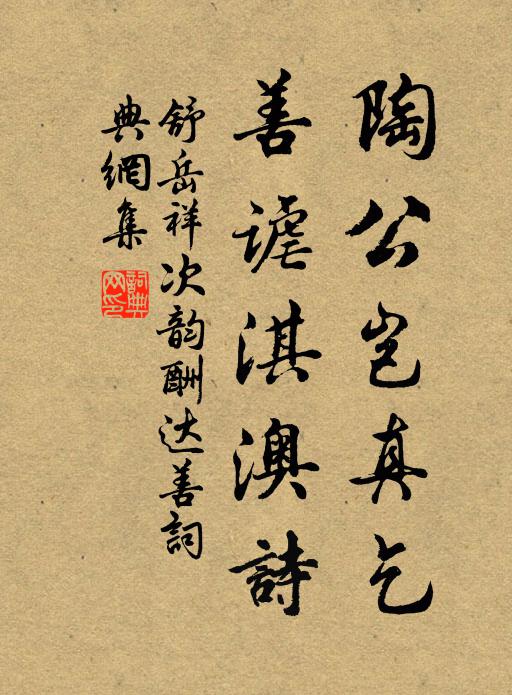 陶公岂真乞
善謔淇澳詩
舒岳祥次韵酬达善詞
典網集
詞典网印